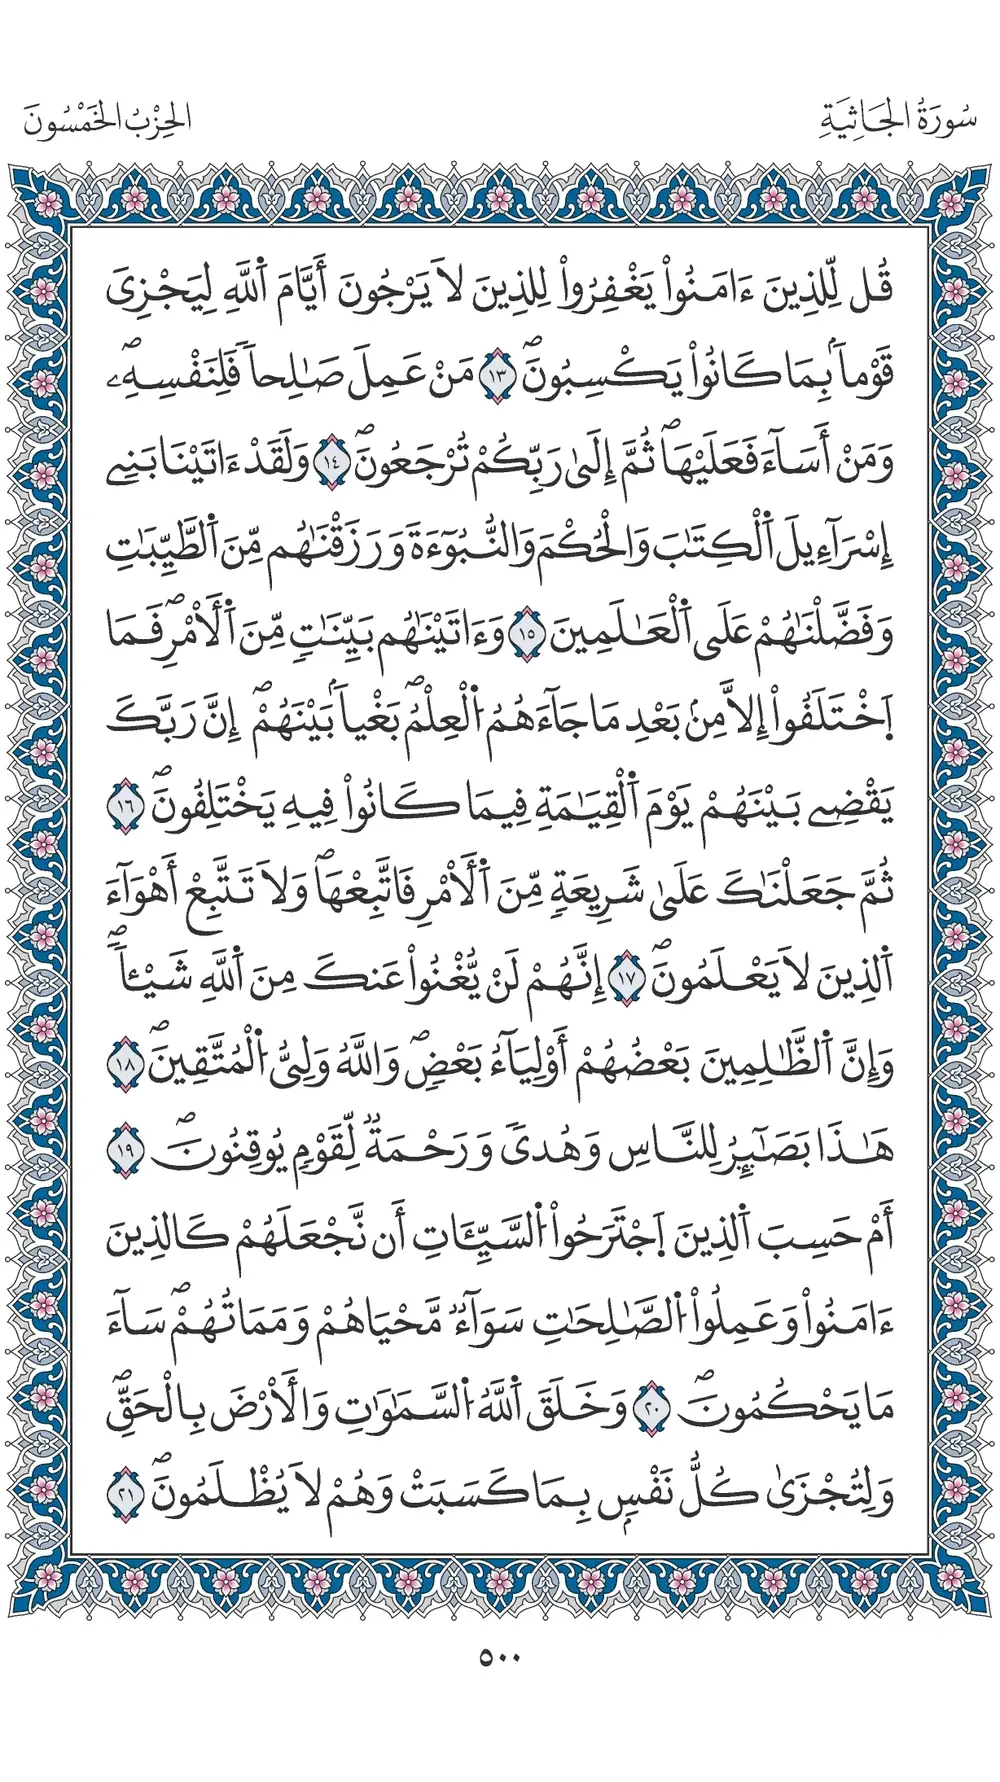 سُورَةُ الجَاثِيَةِ
الحِزْبُ الخَمْسُونَ
قُل لِّلذِينَ ءَامَنُواْ يَغْفِرُواْ لِلذِينَ لَا يَرْجُونَ أَيَّامَ اَ۬للَّهِ لِيَجْزِيَ
قَوْماَۢ بِمَا كَانُواْ يَكْسِبُونَۖ ١٣ مَنْ عَمِلَ صَٰلِحاٗ فَلِنَفْسِهِۦۖ
وَمَنْ أَسَآءَ فَعَلَيْهَاۖ ثُمَّ إِلَىٰ رَبِّكُمْ تُرْجَعُونَۖ ١٤ وَلَقَدْ ءَاتَيْنَا بَنِےٓ
إِسْرَآءِيلَ اَ۬لْكِتَٰبَ وَالْحُكْمَ وَالنُّبُوٓءَةَ وَرَزَقْنَٰهُم مِّنَ اَ۬لطَّيِّبَٰتِ
وَفَضَّلْنَٰهُمْ عَلَى اَ۬لْعَٰلَمِينَ ١٥ وَءَاتَيْنَٰهُم بَيِّنَٰتٖ مِّنَ اَ۬لْأَمْرِۖ فَمَا
اَ۪خْتَلَفُواْ إِلَّا مِنۢ بَعْدِ مَا جَآءَهُمُ اُ۬لْعِلْمُۖ بَغْياَۢ بَيْنَهُمْۖ إِنَّ رَبَّكَ
يَقْضِے بَيْنَهُمْ يَوْمَ اَ۬لْقِيَٰمَةِ فِيمَا كَانُواْ فِيهِ يَخْتَلِفُونَۖ ١٦
ثُمَّ جَعَلْنَٰكَ عَلَىٰ شَرِيعَةٖ مِّنَ اَ۬لْأَمْرِ فَاتَّبِعْهَاۖ وَلَا تَتَّبِعْ أَهْوَآءَ
اَ۬لذِينَ لَا يَعْلَمُونَۖ ١٧ إِنَّهُمْ لَنْ يُّغْنُواْ عَنكَ مِنَ اَ۬للَّهِ شَيْـٔاٗۖ
وَإِنَّ اَ۬لظَّٰلِمِينَ بَعْضُهُمْ أَوْلِيَآءُ بَعْضٖۖ وَاللَّهُ وَلِيُّ اُ۬لْمُتَّقِينَۖ ١٨
هَٰذَا بَصَٰٓئِرُ لِلنَّاسِ وَهُدىٗ وَرَحْمَةٞ لِّقَوْمٖ يُوقِنُونَۖ ١٩
أَمْ حَسِبَ اَ۬لذِينَ اَ۪جْتَرَحُواْ اُ۬لسَّيِّـَٔاتِ أَن نَّجْعَلَهُمْ كَالذِينَ
ءَامَنُواْ وَعَمِلُواْ اُ۬لصَّٰلِحَٰتِ سَوَآءٞ مَّحْيَاهُمْ وَمَمَاتُهُمْۖ سَآءَ
مَا يَحْكُمُونَۖ ٢٠ وَخَلَقَ اَ۬للَّهُ اُ۬لسَّمَٰوَٰتِ وَالْأَرْضَ بِالْحَقِّۖ
وَلِتُجْزَىٰ كُلُّ نَفْسِۢ بِمَا كَسَبَتْ وَهُمْ لَا يُظْلَمُونَۖ ٢١
٥٠٠